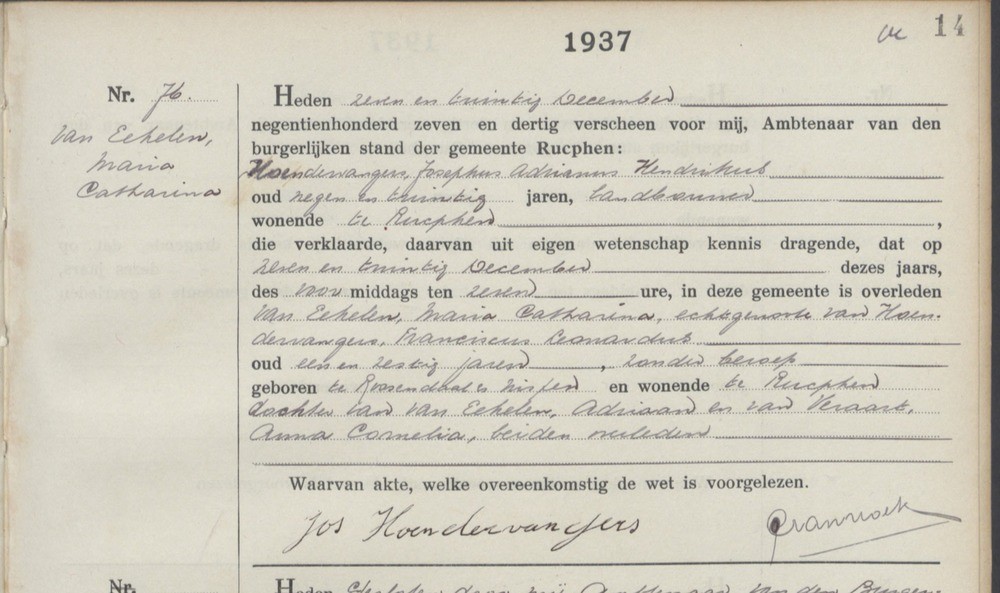 1937
14
Nr. 76.
van Eekelen,
Maria
Catharina
Heden zeven en twintig December
negentienhonderd zeven en dertig verscheen voor mij, Ambtenaar van den
burgerlijken stand der gemeente Rucphen:
Hoendervangers, Josephus Adrianus Hendrikus
oud negen en twintig jaren, landbouwer
wonende te Rucphen,
die verklaarde, daarvan uit eigen wetenschap kennis dragende, dat op
zeven en twintig December dezes jaars,
des voor middags ten zeven ure, in deze gemeente is overleden
van Eekelen, Maria Catharina, echtgenoote van Hoen-
dervangers, Franciscus Leonardus
oud een en zestig jaren, zonder beroep
geboren te Roosendaal en Nispen en wonende te Rucphen
dochter van van Eekelen, Adriaan en van Veraart,
Anna Cornelia, beiden overleden
Waarvan akte, welke overeenkomstig de wet is voorgelezen.
Jos Hoendervangers
Nr.
Heden